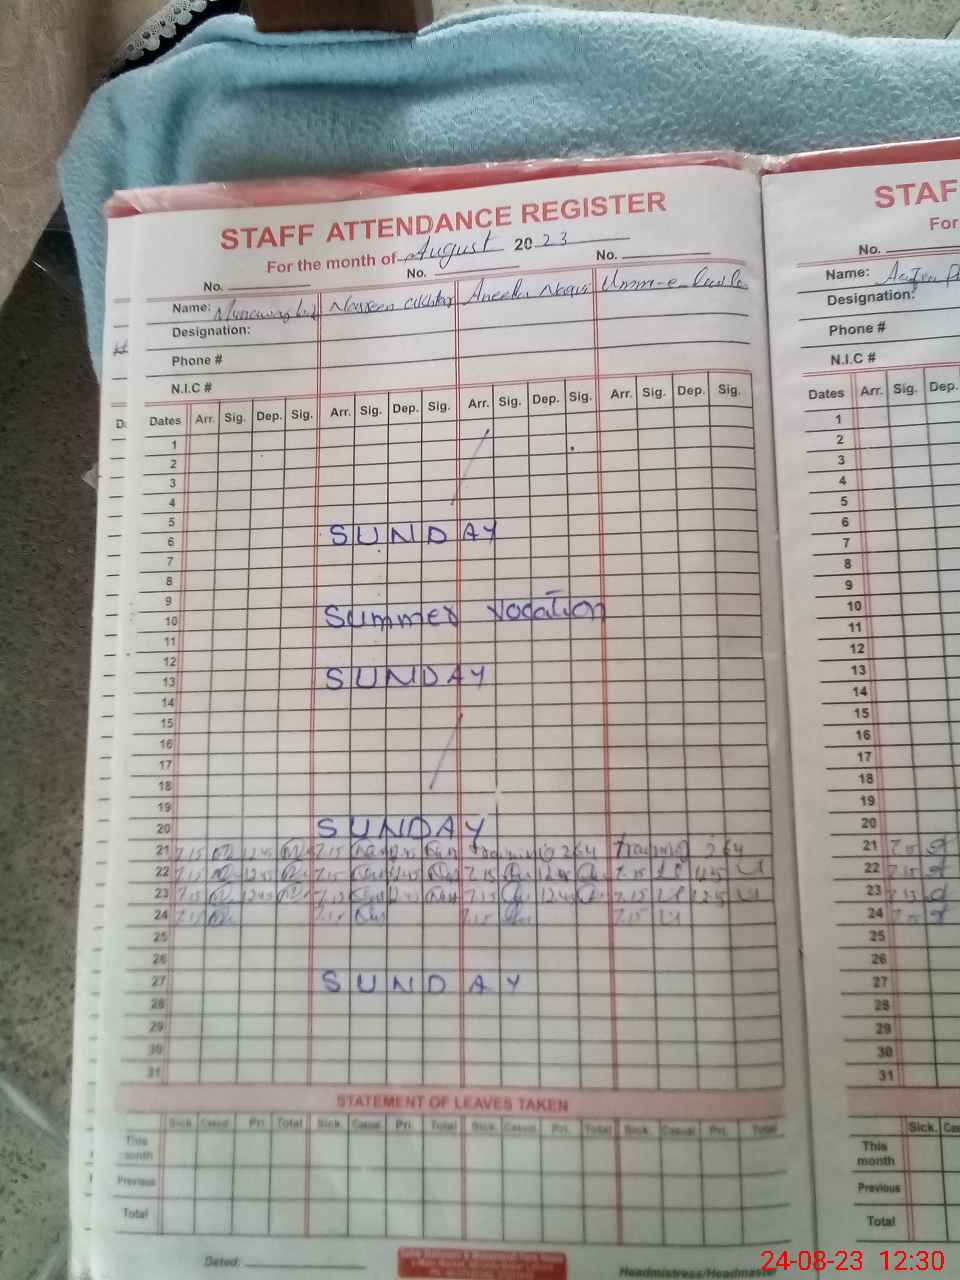 STAFF ATTENDANCE REGISTER
For the month of August 20 23
No. No. No.
Name: Aneela Naqvi
Designation:
Phone #
N.I.C #
Dates Arr. Sig. Dep. Sig. Arr. Sig. Dep. Sig. Arr. Sig. Dep. Sig. Arr. Sig. Dep. Sig.
1
2
3
4
5
6 SUNDAY
7
8
9
10 Summer Vocation
11
12
13 SUNDAY
14
15
16
17
18
19
20 SUNDAY
21 7.15 1245 7.15 Training 264 Training 264
22 7.15 1245 7.15 1245 7.15 7.15
23 7.15 1245 7.15 1245 7.15 1245
24 7.15 7.15 7.15 7.15
25
26
27 SUNDAY
28
29
30
31
STATEMENT OF LEAVES TAKEN
Sick. Casual Pri. Total Sick. Casual Pri. Total Sick. Casual Pri. Total Sick. Casual Pri. Total
This month
Previous
Total
Dated:
Headmistress/Headmaster
STAF
For
No.
Name:
Designation:
Phone #
N.I.C #
Dates Arr. Sig. Dep.
1
2
3
4
5
6
7
8
9
10
11
12
13
14
15
16
17
18
19
20
21 7.15
22 7.15
23 7.15
24 7.15
25
26
27
28
29
30
31
Sick. Cas
This month
Previous
Total
24-08-23 12:30